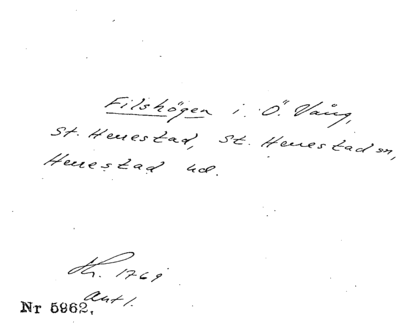 Filshögen i Ö. Vång,
St. Herrestad, St. Herrestad sn,
Herrestad hd.
1769
Nr 5962.